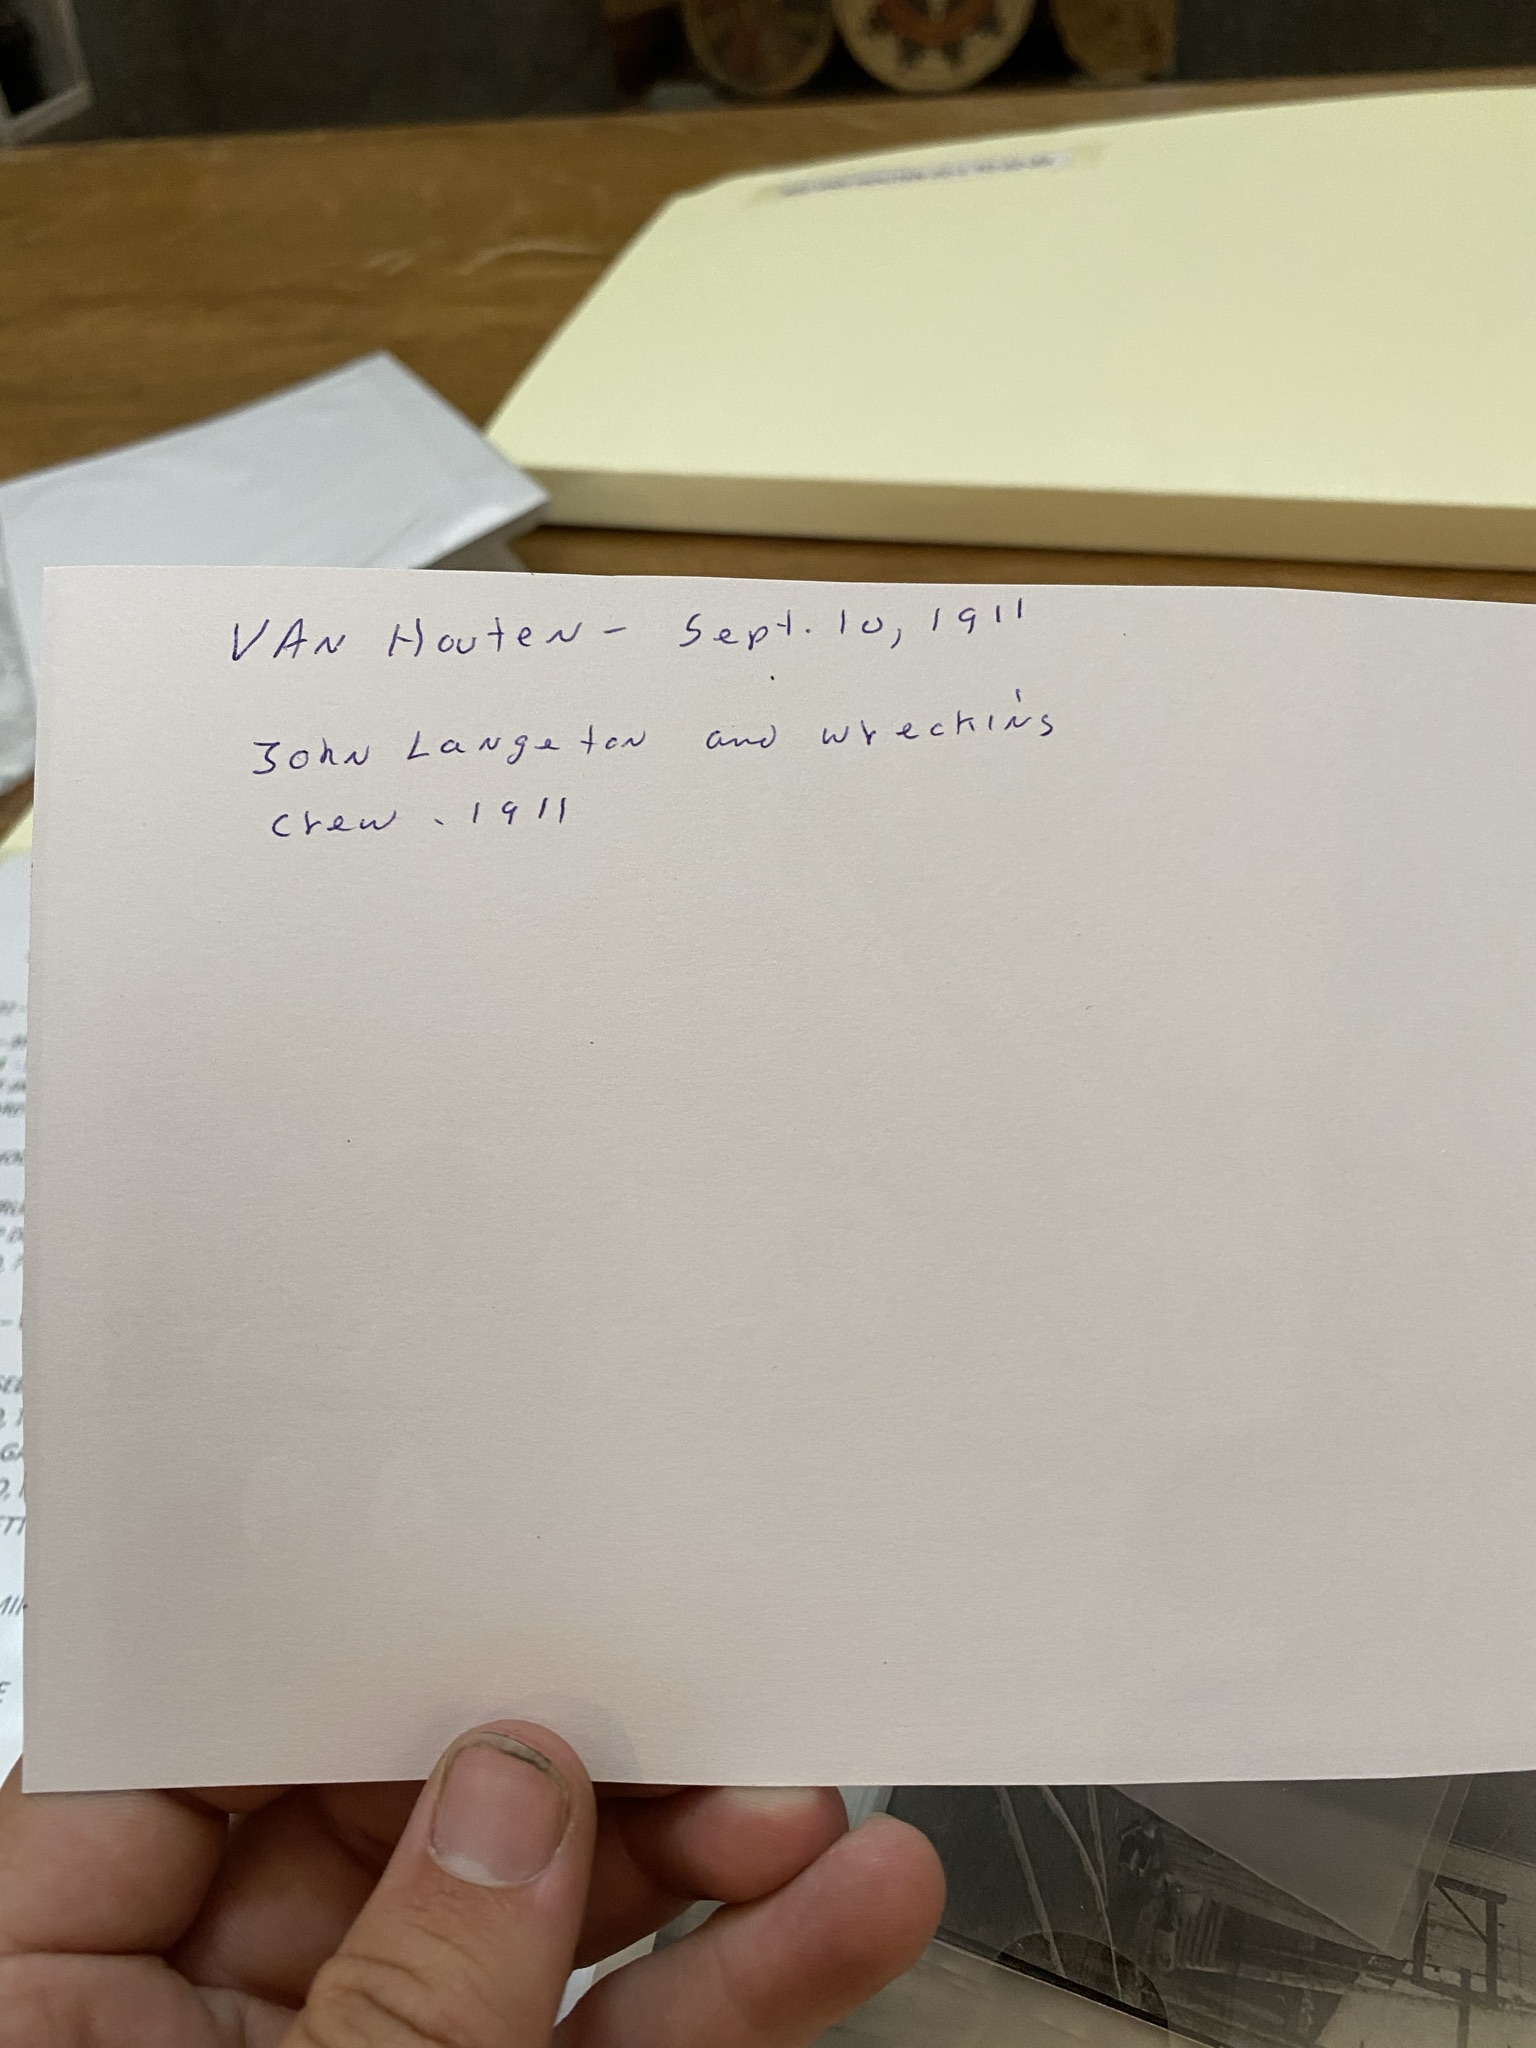 VAN Houten - Sept. 10, 1911
John Langeton and wrecking
crew. 1911